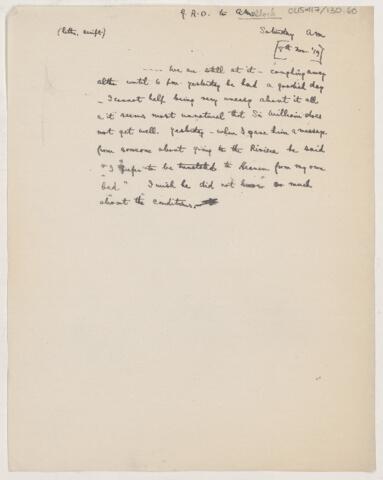 G.R.O. to
CUS417/130.60
(letter, script)
Saturday a.m
[8th Nov. '19]
---- We are still at it - coughing away
altho until 6 p.m. yesterday he had a goodish day
- I cannot help being very uneasy about it all
& it seems most unnatural that Sir William does
not get well. Yesterday - when I gave him a message
from someone about going to the Riviera he said
"I prefer to be translated to Heaven from my own
bed." I wish he did not know so much
about the conditions.